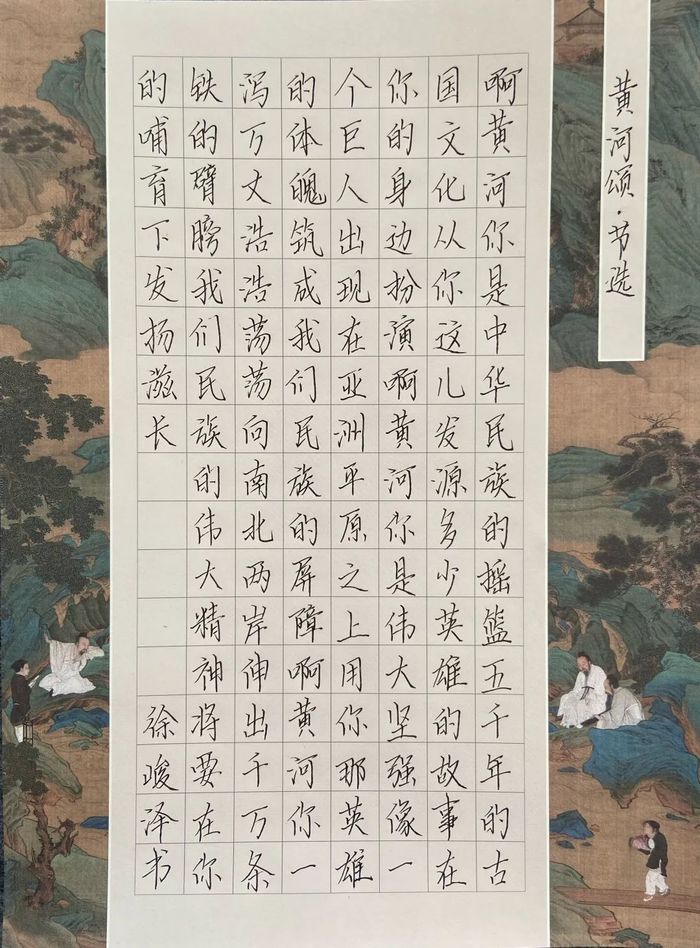 黄河颂·节选
啊黄河你是中华民族的摇篮五千年的古
国文化从你这儿发源多少英雄的故事在
你的身边扮演啊黄河你是伟大坚强像一
个巨人出现在亚洲平原之上用你那英雄
的体魄筑成我们民族的屏障啊黄河你一
泻万丈浩浩荡荡向南北两岸伸出千万条
铁的臂膀我们民族的伟大精神将要在你
的哺育下发扬滋长
徐峻泽书